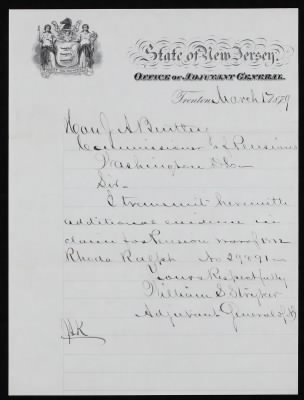 State of New Jersey.
Office of Adjutant General.
Trenton March 1 1879
Hon J A Bentley
Commissioner of Pensions
Washington D.C.
Sir—
I transmit herewith
additional evidence in
claim for Pension War of 1812
Rhoda Ralph No 29891—
Yours Respectfully
William S Stryker
Adjutant General of NJ